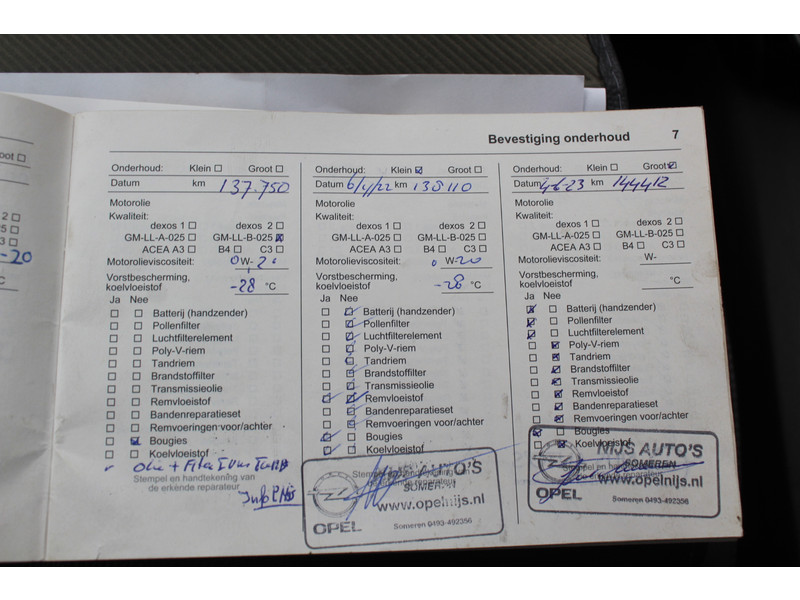 Bevestiging onderhoud 7
oot
2
5
3
-20
°C
Onderhoud: Klein Groot
Datum km 137.750
Motorolie
Kwaliteit:
dexos 1 dexos 2
GM-LL-A-025 GM-LL-B-025
ACEA A3 B4 C3
Motorolieviscositeit: 0W-20
Vorstbescherming,
koelvloeistof -28 °C
Ja Nee
Batterij (handzender)
Pollenfilter
Luchtfilterelement
Poly-V-riem
Tandriem
Brandstoffilter
Transmissieolie
Remvloeistof
Bandenreparatieset
Remvoeringen voor/achter
Bougies
Koelvloeistof
Olie + Filter
Stempel en handtekening van
de erkende reparateur
Onderhoud: Klein Groot
Datum 6/4/22 km 138110
Motorolie
Kwaliteit:
dexos 1 dexos 2
GM-LL-A-025 GM-LL-B-025
ACEA A3 B4 C3
Motorolieviscositeit: 0 W-20
Vorstbescherming,
koelvloeistof -28 °C
Ja Nee
Batterij (handzender)
Pollenfilter
Luchtfilterelement
Poly-V-riem
Tandriem
Brandstoffilter
Transmissieolie
Remvloeistof
Bandenreparatieset
Remvoeringen voor/achter
Bougies
Koelvloeistof
NIJS AUTO'S
SOMEREN
www.opelnijs.nl
OPEL
Someren 0493-492356
Onderhoud: Klein Groot
Datum 4-6-23 km 144412
Motorolie
Kwaliteit:
dexos 1 dexos 2
GM-LL-A-025 GM-LL-B-025
ACEA A3 B4 C3
Motorolieviscositeit: W-
Vorstbescherming,
koelvloeistof °C
Ja Nee
Batterij (handzender)
Pollenfilter
Luchtfilterelement
Poly-V-riem
Tandriem
Brandstoffilter
Transmissieolie
Remvloeistof
Bandenreparatieset
Remvoeringen voor/achter
Bougies
Koelvloeistof
NIJS AUTO'S
SOMEREN
www.opelnijs.nl
OPEL
Someren 0493-492356